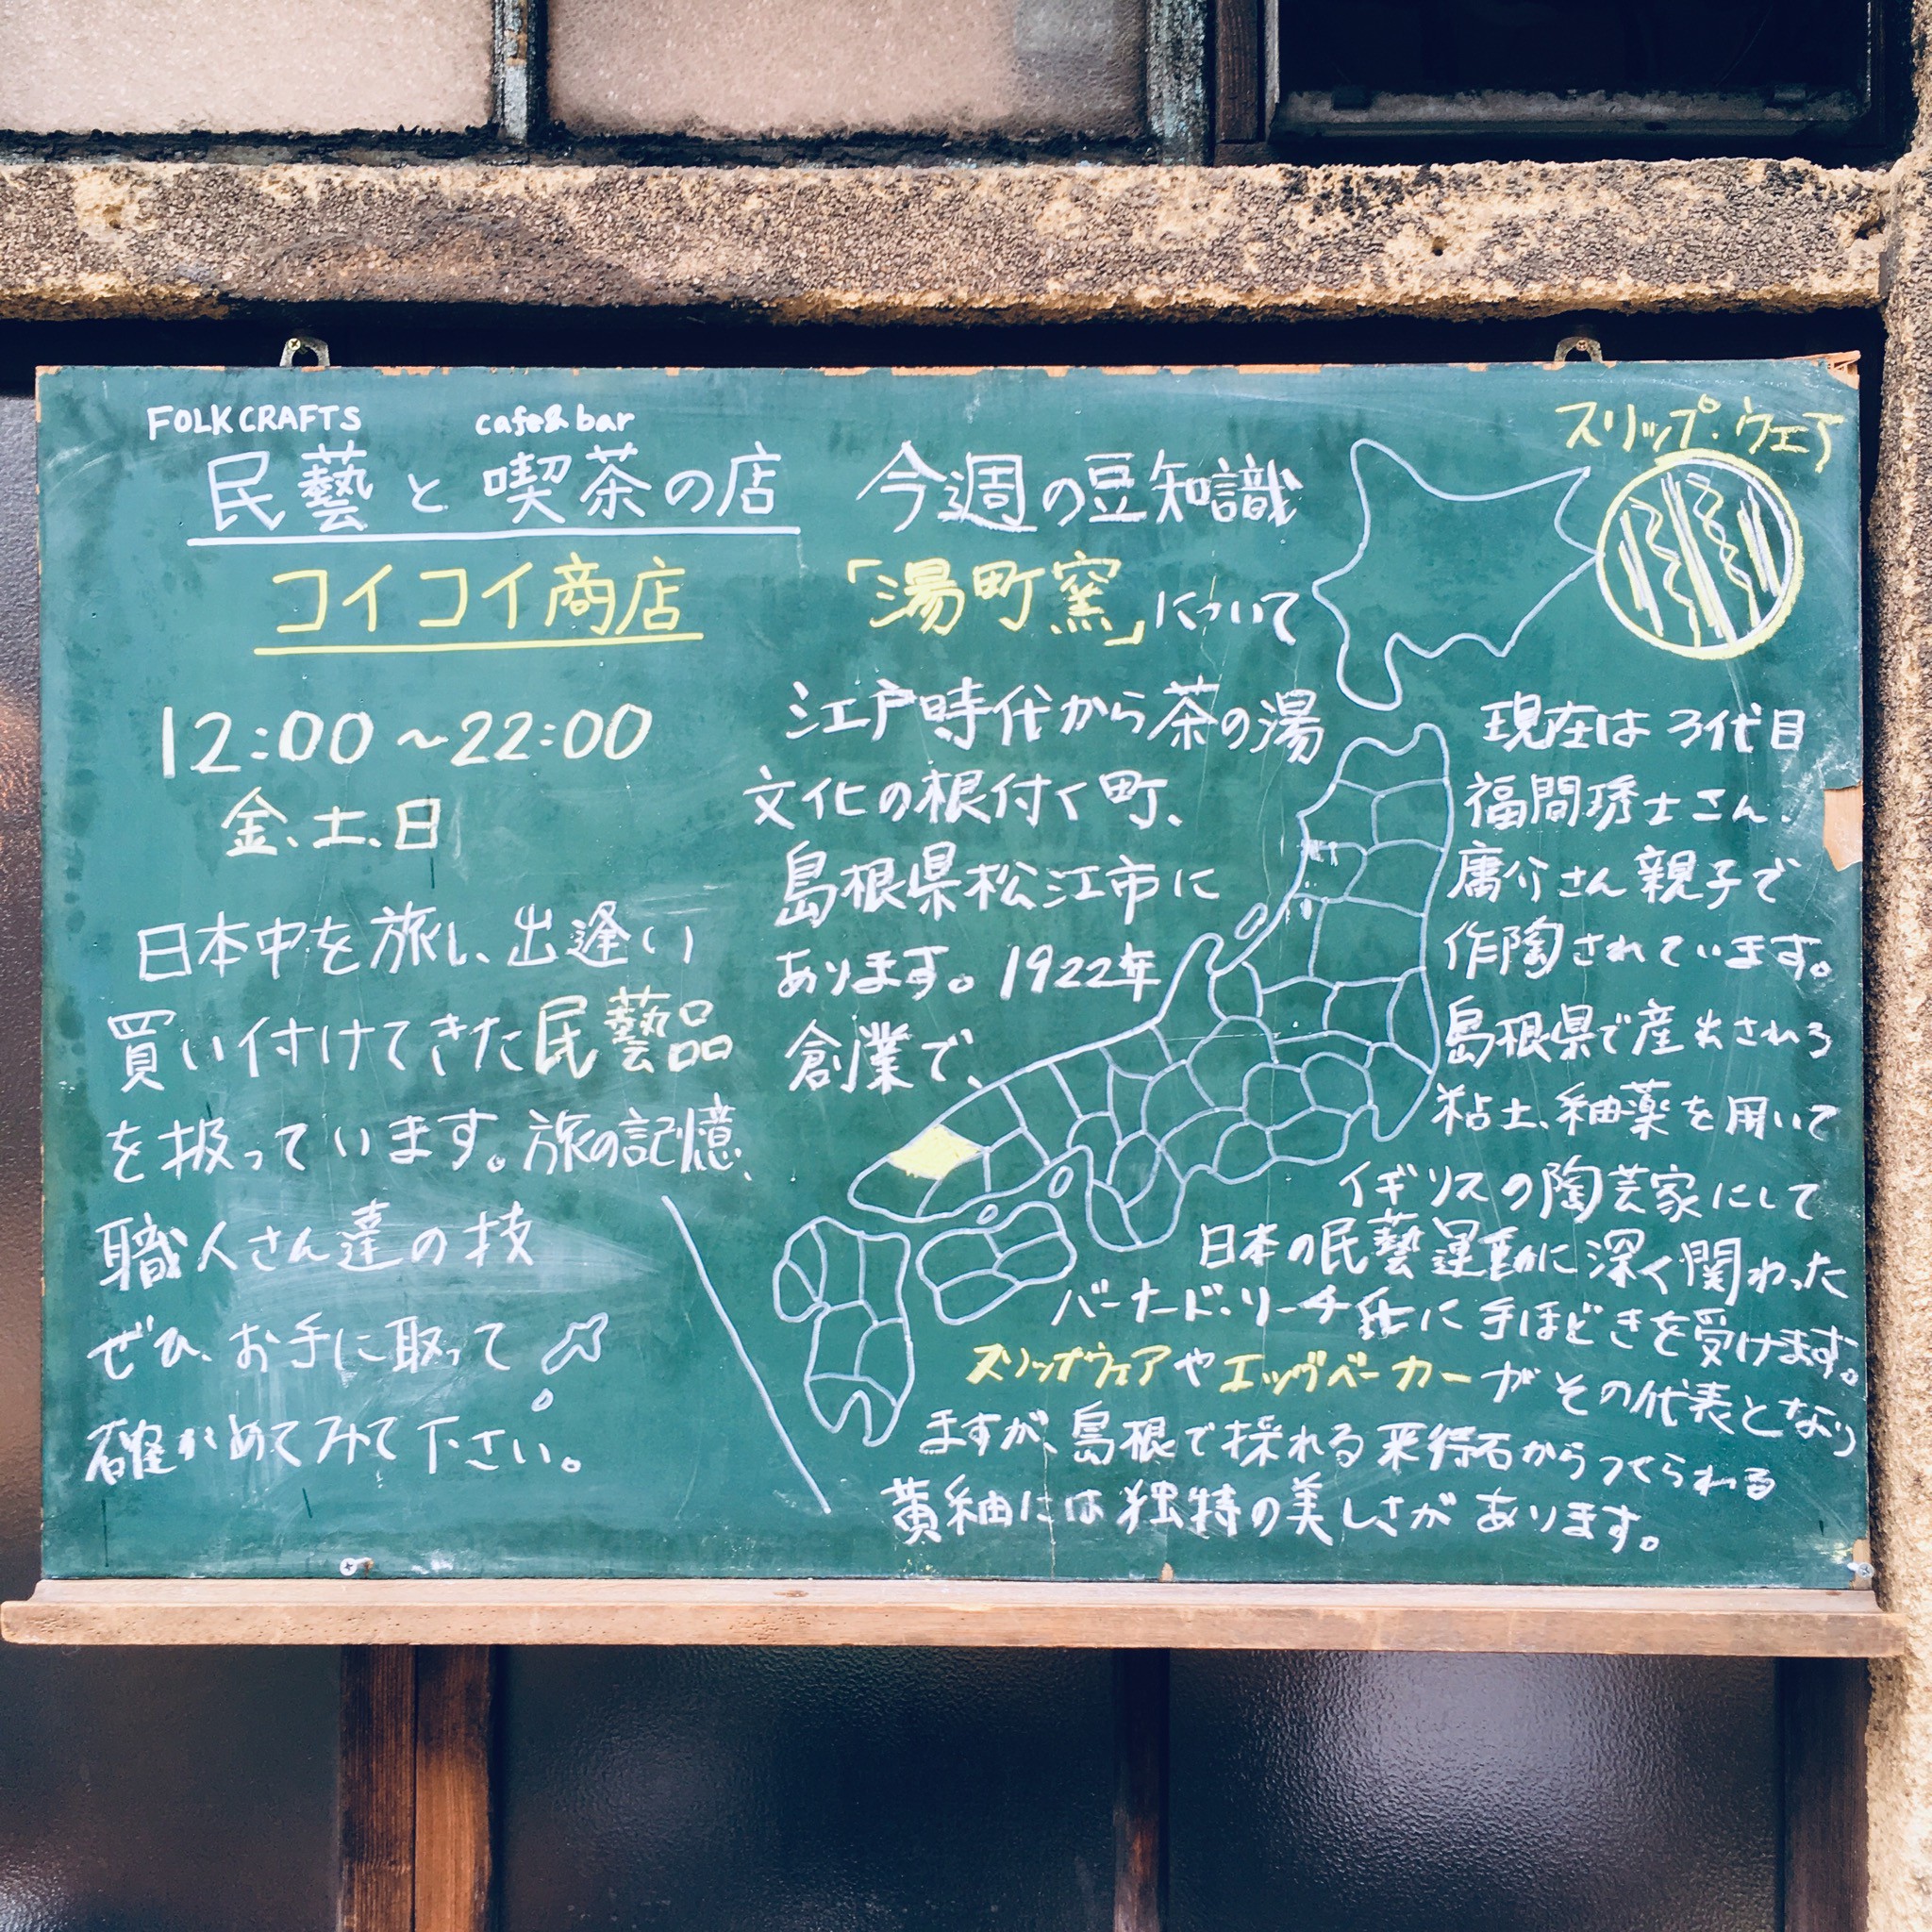 FOLK CRAFTS cafe&bar
民藝と喫茶の店
コイコイ商店
12:00～22:00
金、土、日
日本中を旅し、出逢い
買い付けてきた民藝品
を扱っています。旅の記憶、
職人さん達の技
ぜひ、お手に取って
確かめてみて下さい。
今週の豆知識
「湯町窯」について
江戸時代から茶の湯
文化の根付く町、
島根県松江市に
あります。1922年
創業で、
スリップ・ウェア
現在は3代目
福間琇士さん、
庸介さん親子で
作陶されています。
島根県で産出される
粘土、釉薬を用いて
イギリスの陶芸家にして
日本の民藝運動に深く関わった
バーナード・リーチ氏に手ほどきを受けます。
スリップウェアやエッグベーカーがその代表となり
ますが、島根で採れる来待石からつくられる
黄釉には独特の美しさがあります。